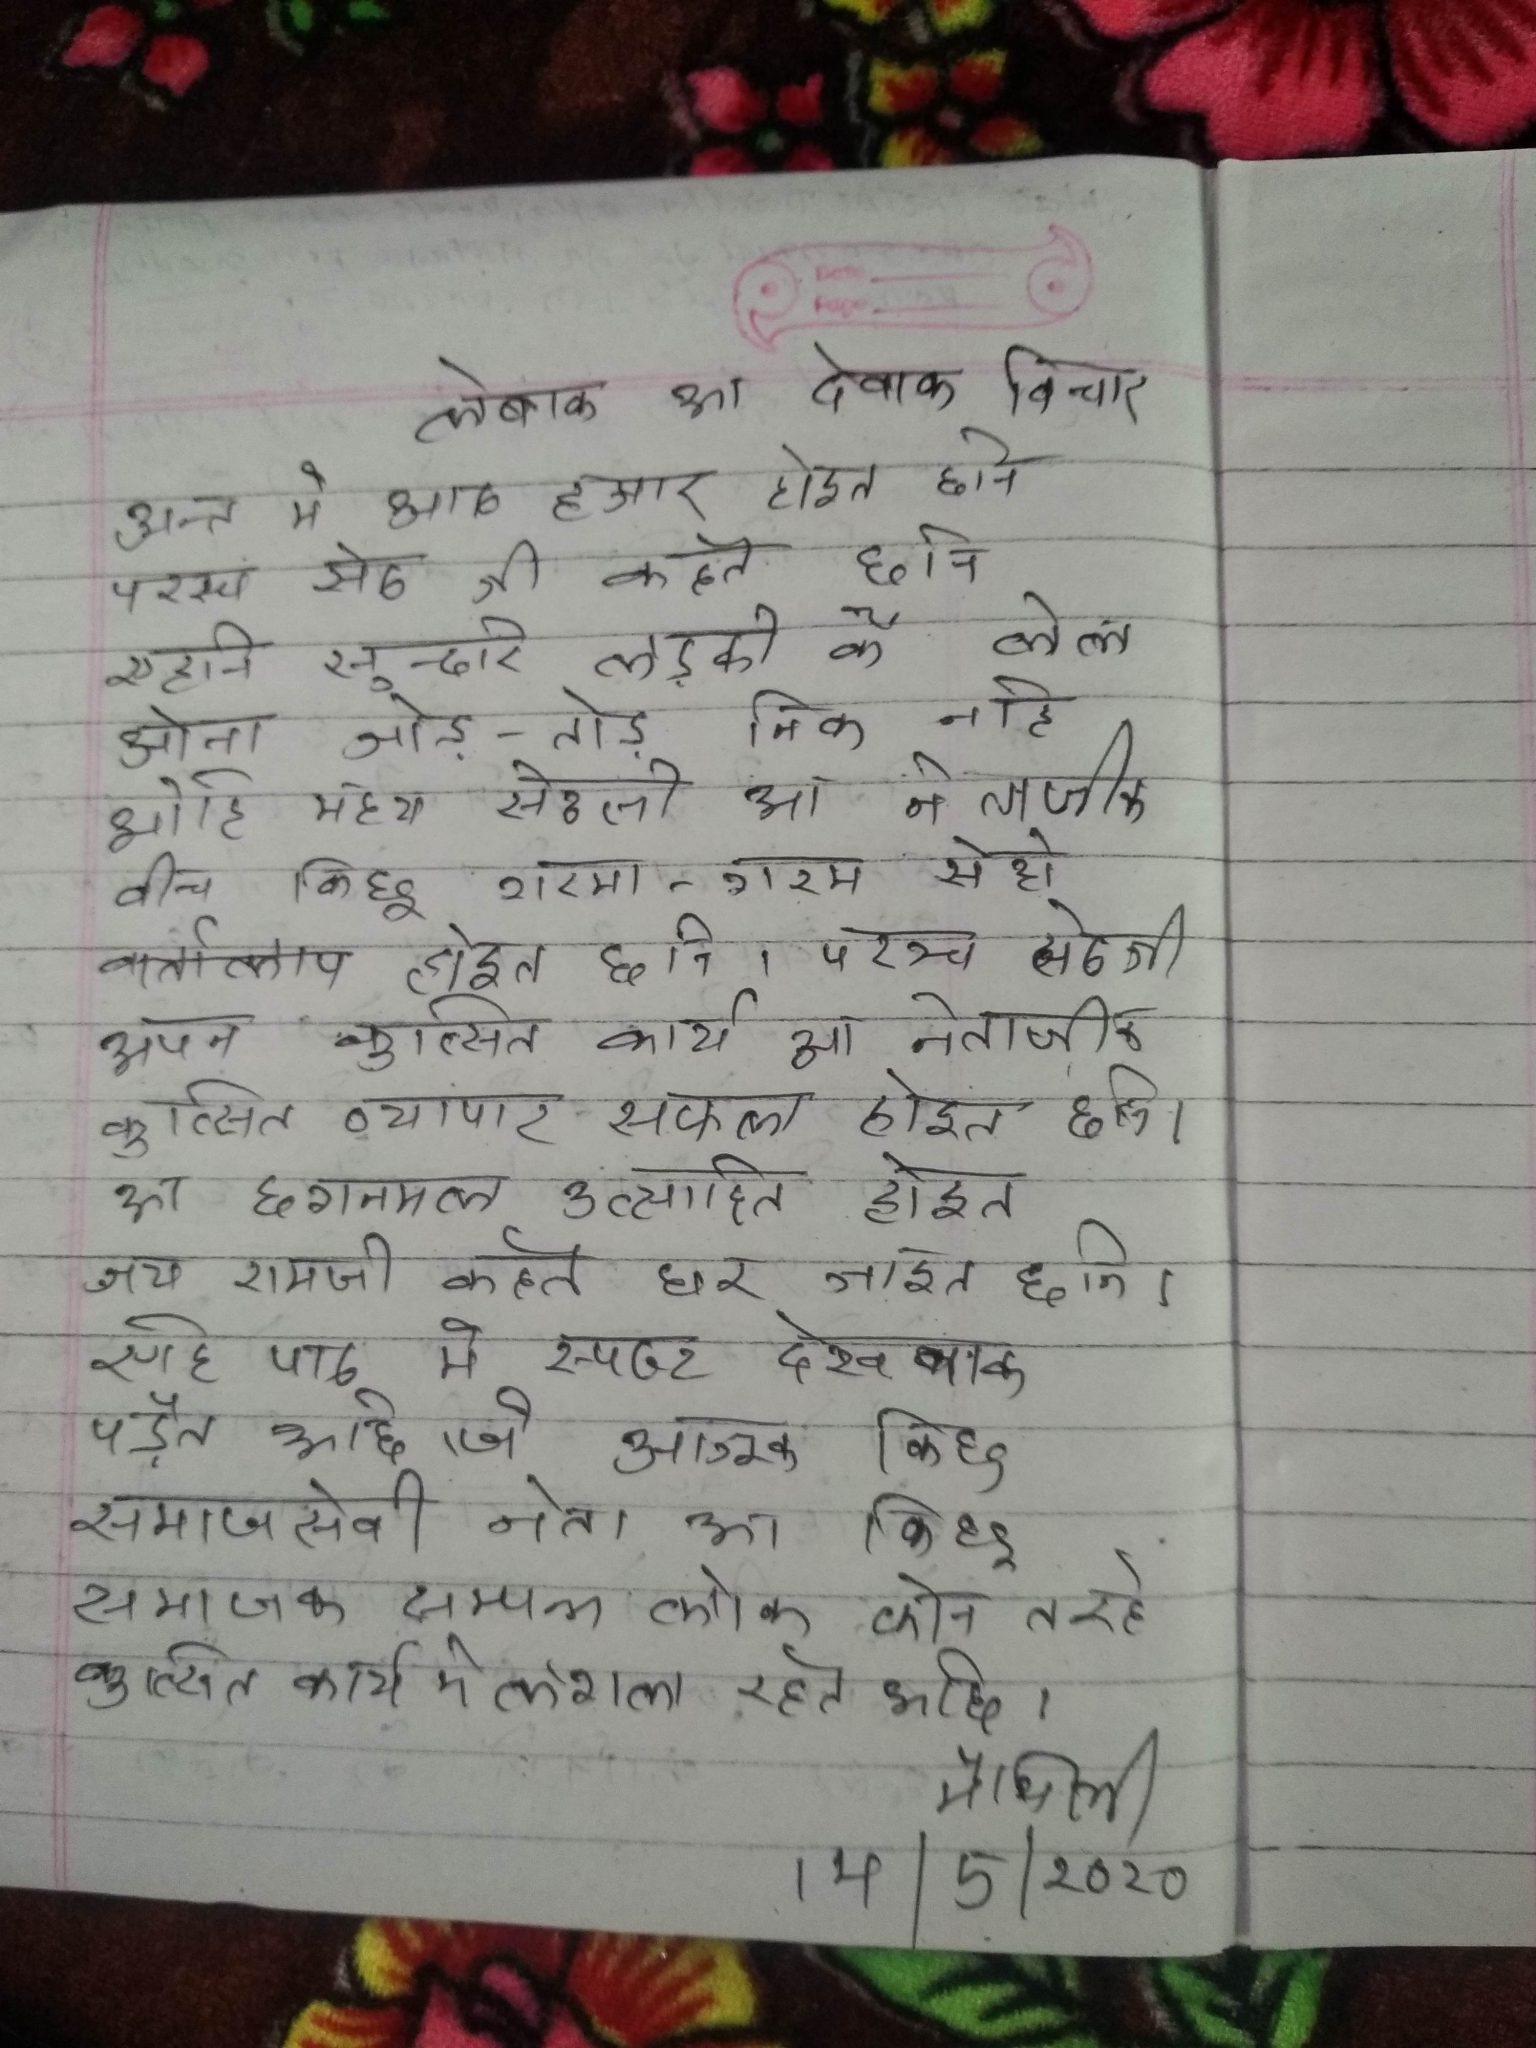 Date
Page
लेबाक आ देवाक विचार
अन्त मे आठ हजार होइत छनि
परञ्च सेठ जी कहते छनि
एहनि सुन्दरि लड़की कें लेल
ओना जोड़-तोड़ निक नहि
ओहि मध्य सेठजी आ नेताजीक
बीच किछु गरमा-गरम सेहो
वार्तालाप होइत छनि। परञ्च सेठजी
अपन कुत्सित कार्य आ नेताजीक
कुत्सित व्यापार सफल होइत छनि।
आ छगनमल उत्साहित होइत
जय रामजी कहैत घर जाइत छनि।
एहि पाठ मे स्पष्ट देखबाक
पड़ैत अछि जे आजुक किछु
समाजसेवी नेता आ किछु
समाजक सम्पन्न लोक कोन तरहे
कुत्सित कार्य मे लागल रहैत अछि।
मैथिली
14/5/2020